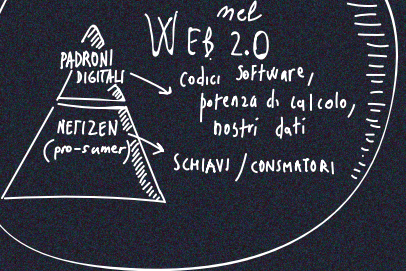 nel
WEB 2.0
PADRONI
DIGITALI
codici software,
potenza di calcolo,
nostri dati
NETIZEN
(pro-sumer)
SCHIAVI / CONSMATORI